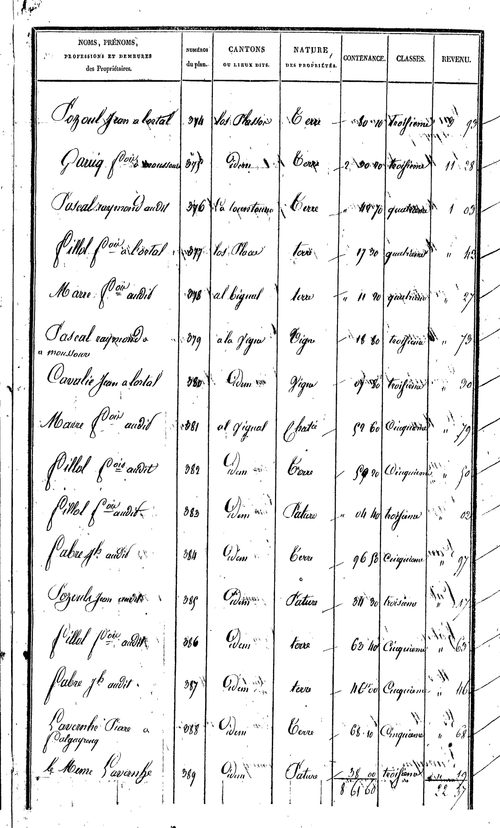 NOMS, PRÉNOMS, PROFESSIONS ET DEMEURES des Propriétaires. NUMÉROS du plan. CANTONS OU LIEUX DITS. NATURE DES PROPRIÉTÉS. CONTENANCE. CLASSES. REVENU.
Pozoul Jean a lortal 374 Las Plassos Terre 30 10 troisieme 93
Garrig fcois a moussour 375 idem Terre 2 troisieme 11 28
Pascal raymond audit 376 Terre quatrieme 1 03
fillol fcois a lortal 377 Las Places terre 17 30 quatrieme 43
Marre fcois audit 378 al Vignal terre 11 20 quatrieme 27
Pascal raymond a moussour 379 a la Vigne Vigne 18 80 troisieme 73
Cavalie Jean a lortal 380 idem Vigne troisieme 30
Marre fcois audit 381 al Vignal Chatè 52 60 Cinquieme 79
fillol fcois audit 382 idem Terre Cinquieme 50
fillol fcois audit 383 idem Pature 04 40 troisieme 02
fabre jh audit 384 idem Terre 96 Cinquieme 97
Pozoul Jean audit 385 idem Pature 34 30 troisieme 17
fillol fcois audit 386 idem terre 63 40 Cinquieme 63
fabre jh audit 387 idem terre 46 00 Cinquieme 46
Lavernhe Pierre a 388 idem Terre 68 10 Cinquieme 68
le Meme Lavernhe 389 idem Pature 38 00 troisieme 19
8 61 60 22 57